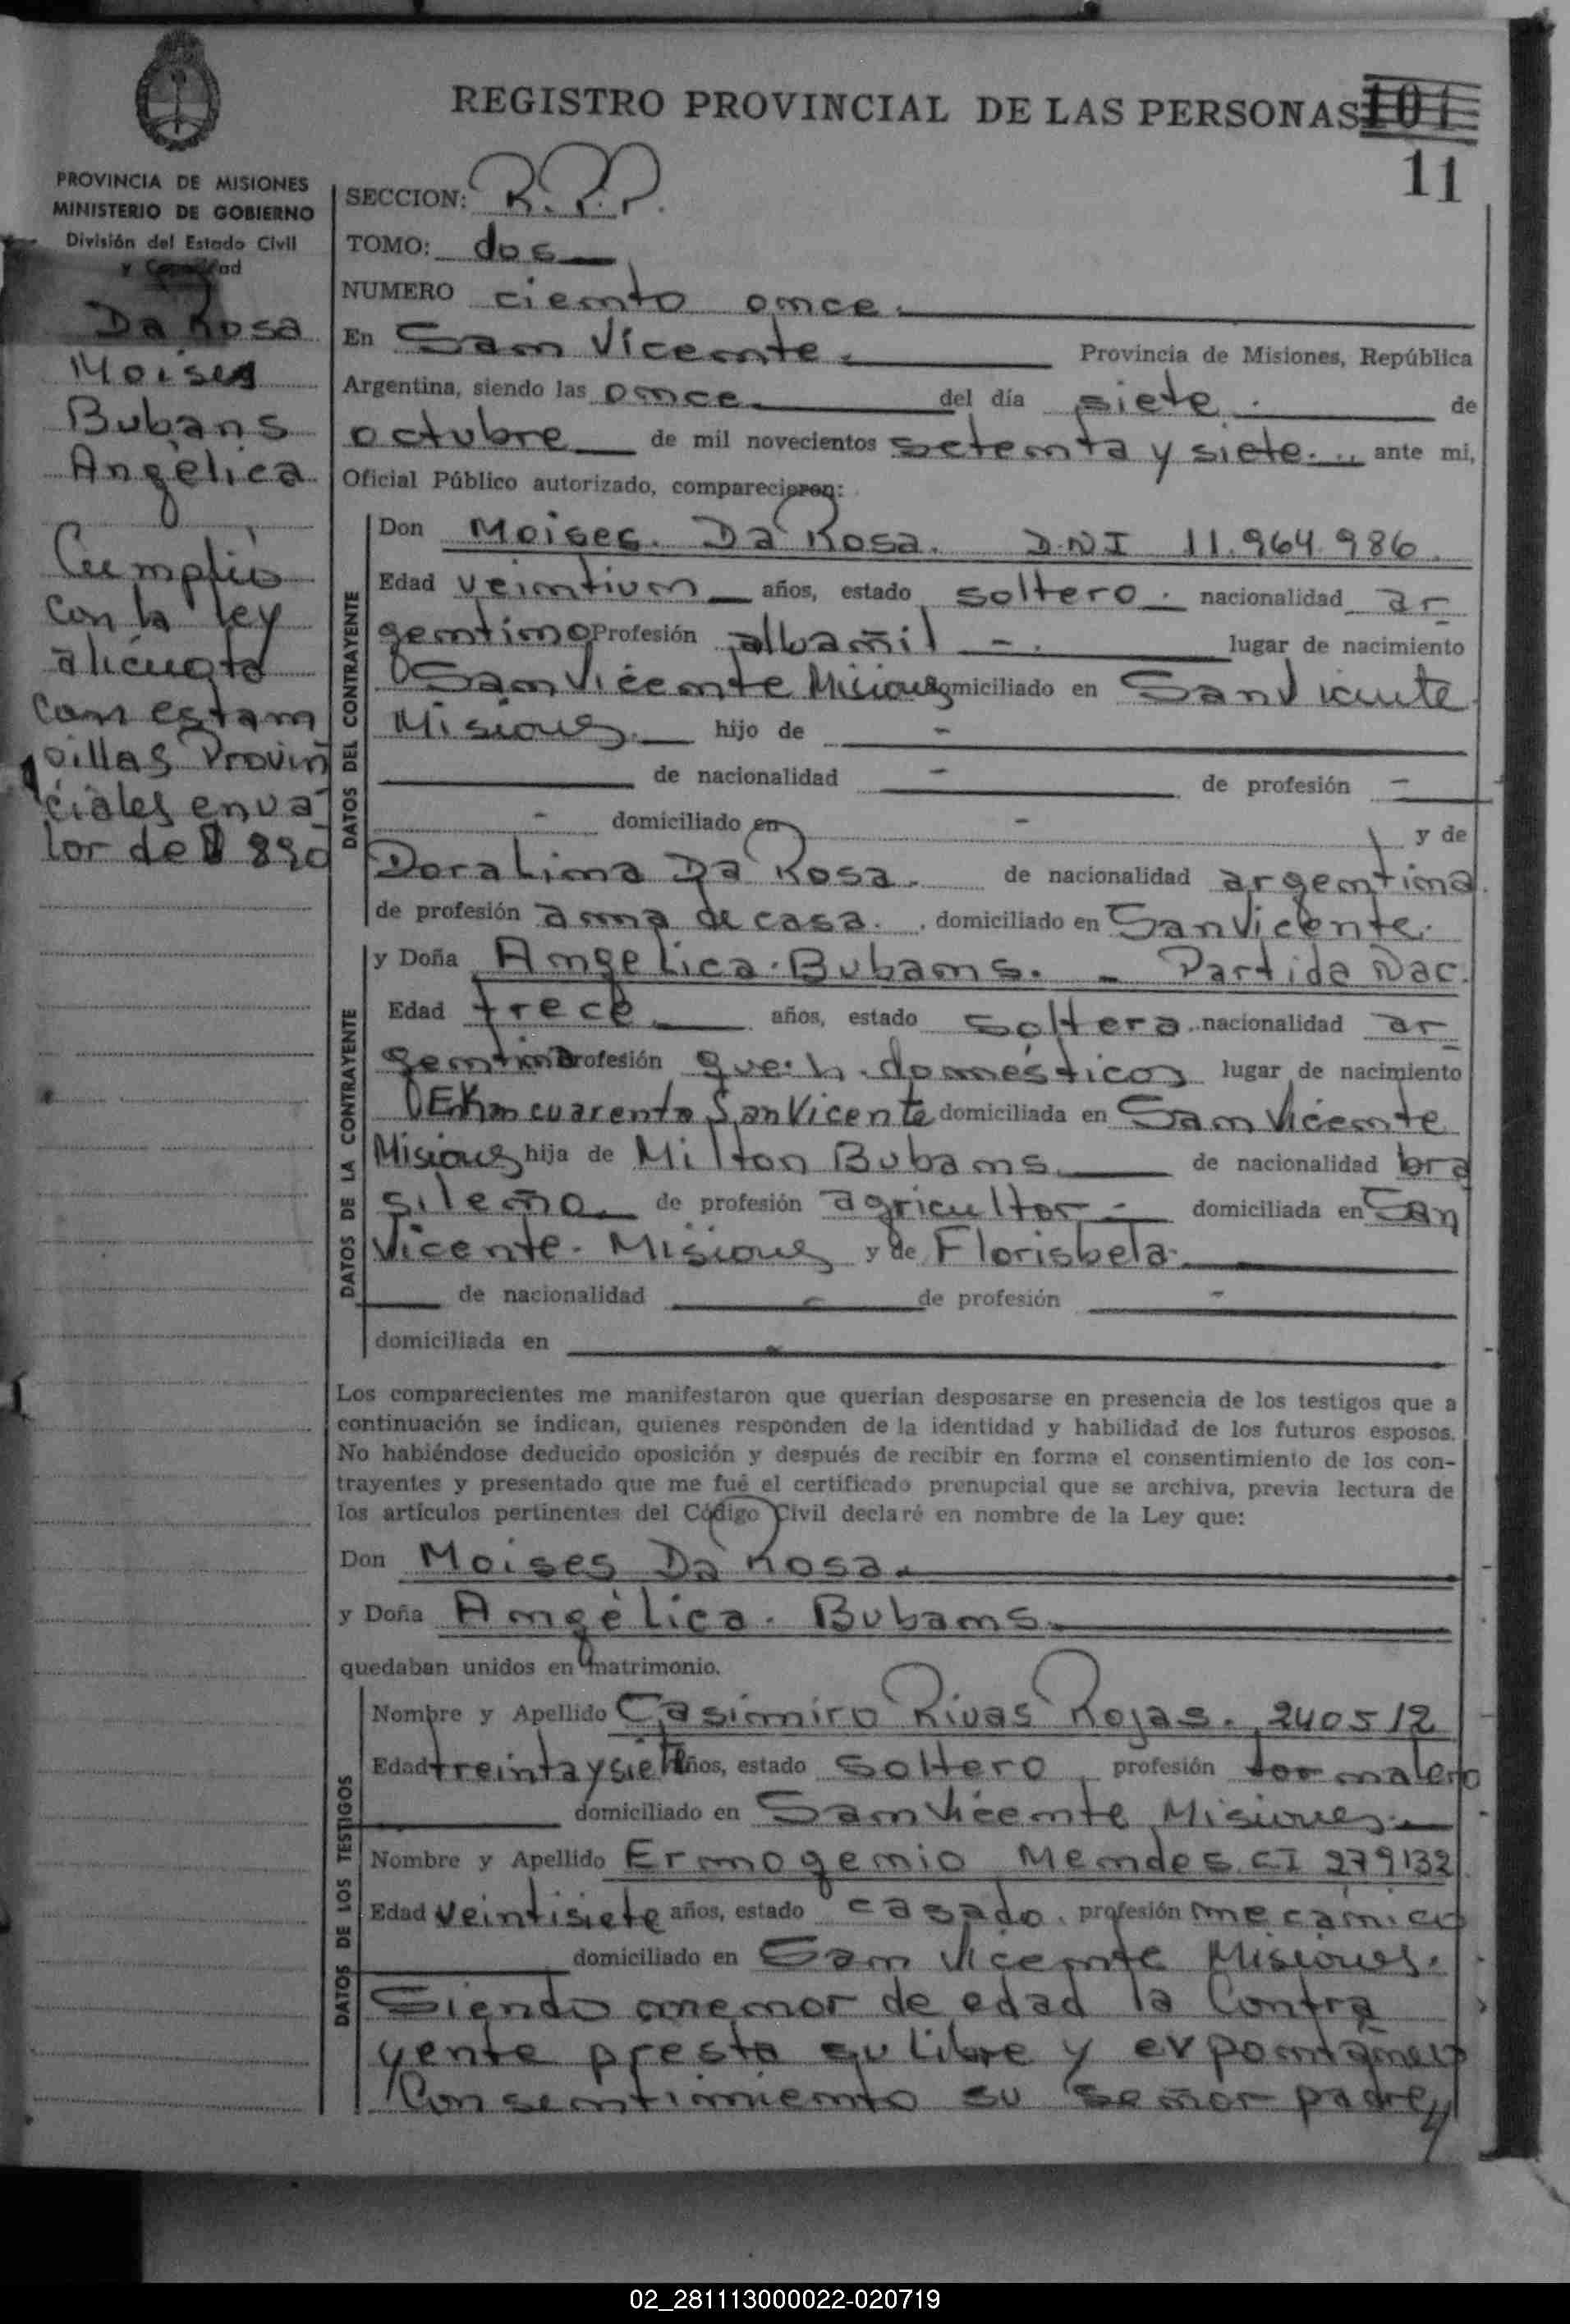 REGISTRO PROVINCIAL DE LAS PERSONAS 101
11
PROVINCIA DE MISIONES
MINISTERIO DE GOBIERNO
División del Estado Civil
y Capacidad
Da Rosa
Moises
Bubans
Angélica
Cumplió
con la ley
alicuota
con estam
pillas Provin
ciales en va
lor de $ 890
SECCION: R.P.P.
TOMO: dos
NUMERO ciento once.
En San Vicente. Provincia de Misiones, República
Argentina, siendo las once del día siete. de
octubre de mil novecientos setenta y siete. ante mi,
Oficial Público autorizado, comparecieron:
DATOS DEL CONTRAYENTE
Don Moises. Da Rosa. D.N.I 11.964.986.
Edad veintiun años, estado soltero. nacionalidad ar
gentino Profesión albañil lugar de nacimiento
San Vicente Misiones domiciliado en San Vicente
Misiones. hijo de -
de nacionalidad - de profesión -
- domiciliado en - y de
Doralina Da Rosa. de nacionalidad argentina.
de profesión ama de casa. domiciliado en San Vicente.
DATOS DE LA CONTRAYENTE
y Doña Angelica. Bubans. - Partida Nac.
Edad trece años, estado soltera. nacionalidad ar
gentina Profesión que. h. domésticos lugar de nacimiento
Km cuarenta San Vicente domiciliada en San Vicente
Misiones hija de Milton Bubans de nacionalidad bra
sileño. de profesión agricultor - domiciliada en San
Vicente. Misiones y de Florisbela.
de nacionalidad - de profesión -
domiciliada en
Los comparecientes me manifestaron que querían desposarse en presencia de los testigos que a
continuación se indican, quienes responden de la identidad y habilidad de los futuros esposos.
No habiéndose deducido oposición y después de recibir en forma el consentimiento de los con-
trayentes y presentado que me fué el certificado prenupcial que se archiva, previa lectura de
los artículos pertinentes del Código Civil declaré en nombre de la Ley que:
Don Moises Da Rosa.
y Doña Angélica. Bubans.
quedaban unidos en matrimonio.
DATOS DE LOS TESTIGOS
Nombre y Apellido Casimiro Rivas Rojas. 240512
Edad treinta y siete años, estado soltero profesión jornalero
domiciliado en San Vicente Misiones.
Nombre y Apellido Ermogenio Mendes. CI 279132.
Edad veintisiete años, estado casado. profesión mecánico
domiciliado en San Vicente Misiones.
Siendo menor de edad la Contra
yente presta su libre y expontáneo
Consentimiento su señor padre,
02_281113000022-020719